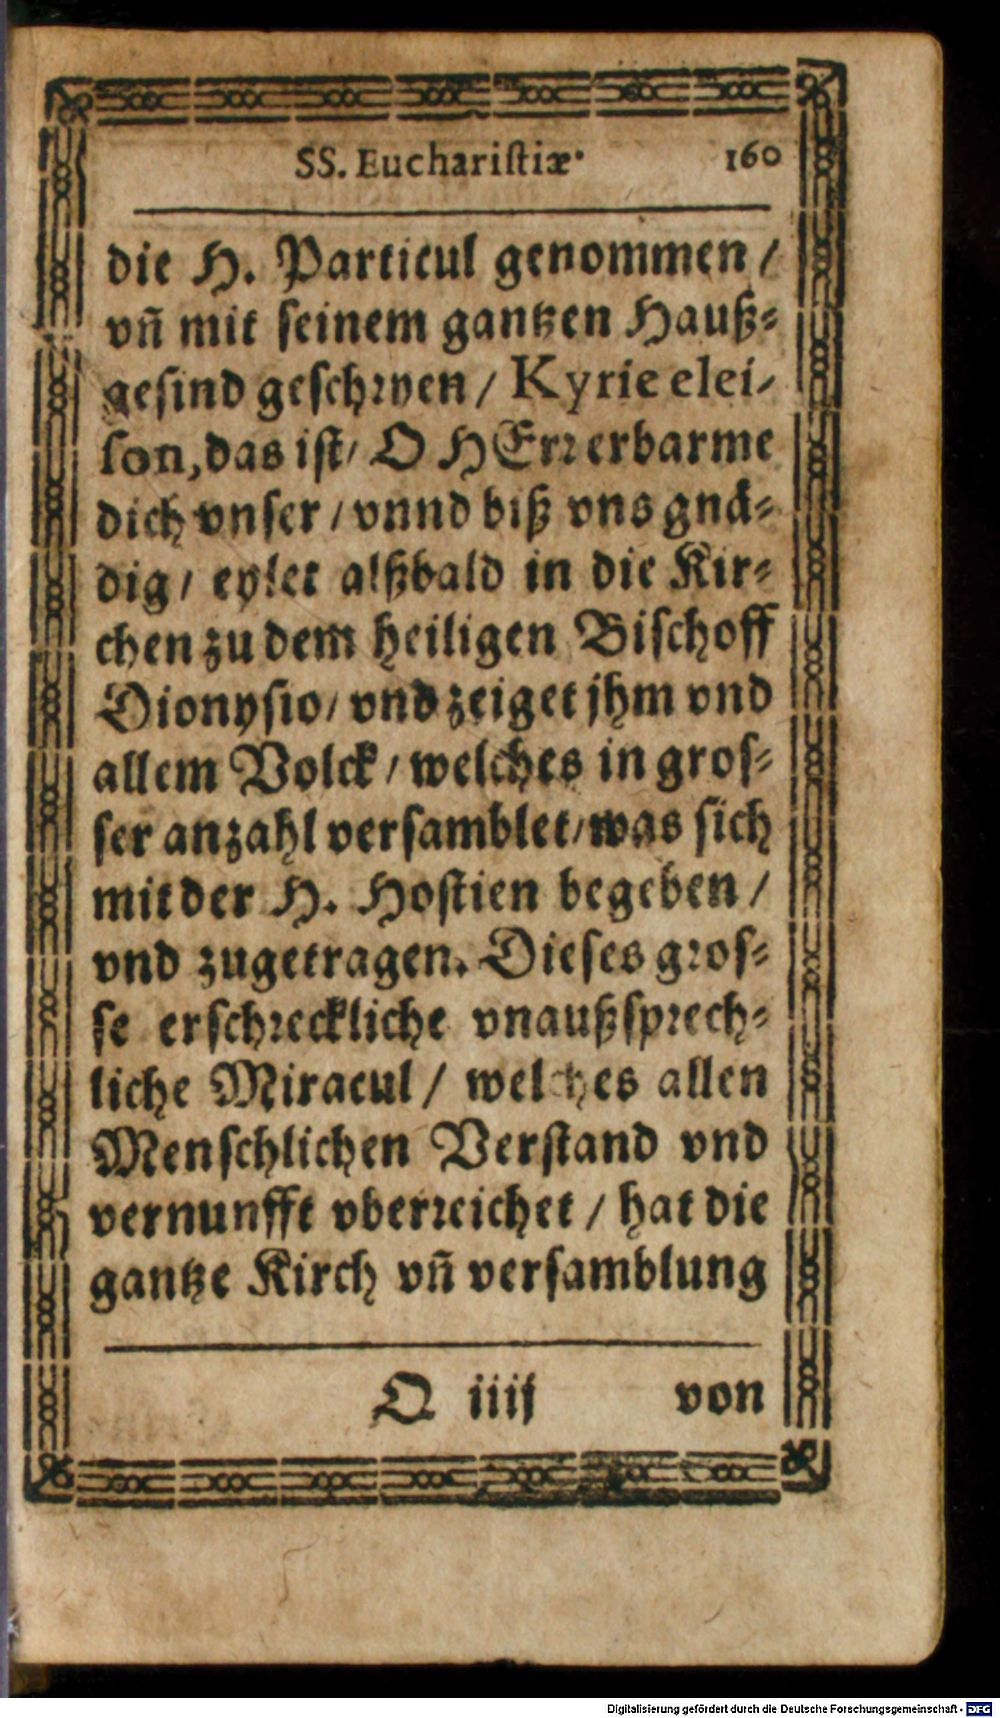 SS. Euchariſtiæ. 160
die H. Particul genommen /
vñ mit ſeinem gantzen Hauß⸗
geſind geſchꝛyen / Kyrie elei-
ſon, das iſt / O HErꝛ erbarme
dich vnſer / vnnd biß vns gnä⸗
dig / eylet alßbald in die Kir⸗
chen zu dem heiligen Biſchoff
Dionyſio / vnd zeiget jhm vnd
allem Volck / welches in groſ⸗
ſer anzahl verſamblet / was ſich
mit der H. Hoſtien begeben /
vnd zugetragen. Dieſes gꝛoſ⸗
ſe erſchꝛeckliche vnaußſpꝛech⸗
liche Miracul / welches allen
Menſchlichen Verſtand vnd
vernunfft vberꝛeichet / hat die
gantze Kirch vñ verſamblung
O iiij von
Digitalisierung gefördert durch die Deutsche Forschungsgemeinschaft - DFG